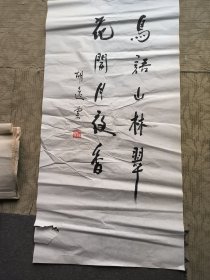 鳥語山林翠
花間月夜香